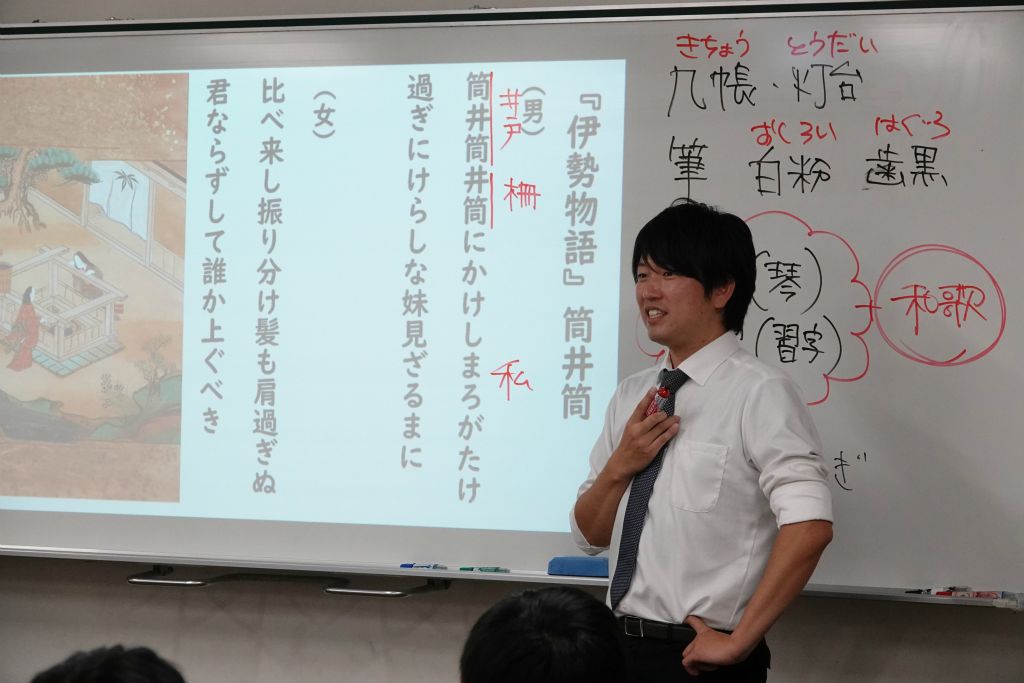 『伊勢物語』 筒井筒
(男)
筒井筒井筒にかけしまろがたけ
井戸 柵 私
過ぎにけらしな妹見ざるまに
(女)
比べ来し振り分け髪も肩過ぎぬ
君ならずして誰か上ぐべき
きちょう とうだい
几帳・灯台
おしろい はぐろ
筆 白粉 歯黒
(琴)
(習字)
和歌
ぎ